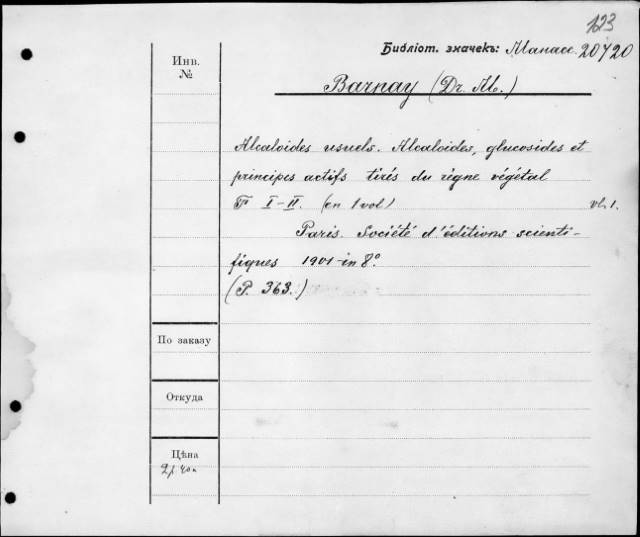 123
Библіот. значекъ: Манасс. 20720
Инв.
№
Barnay (Dr. M.)
Alcaloides usuels. Alcaloides, glucosides et
principes actifs tirés du règne végétal
T I-II. (en 1 vol) vl. 1.
Paris. Société d'éditions scienti-
fiques 1901-in 8º
(P. 363.)
По заказу
Откуда
Цѣна
2р. 40к